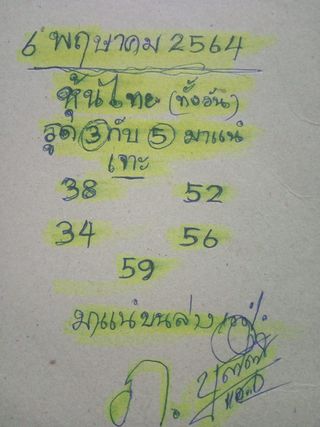 6 พฤษาคม 2564
หุ้นไทย (ทั้งวัน)
รูด 3 กับ 5 มาแน่
เจาะ
38 52
34 56
59
มาแน่บนล่าง
ภ.